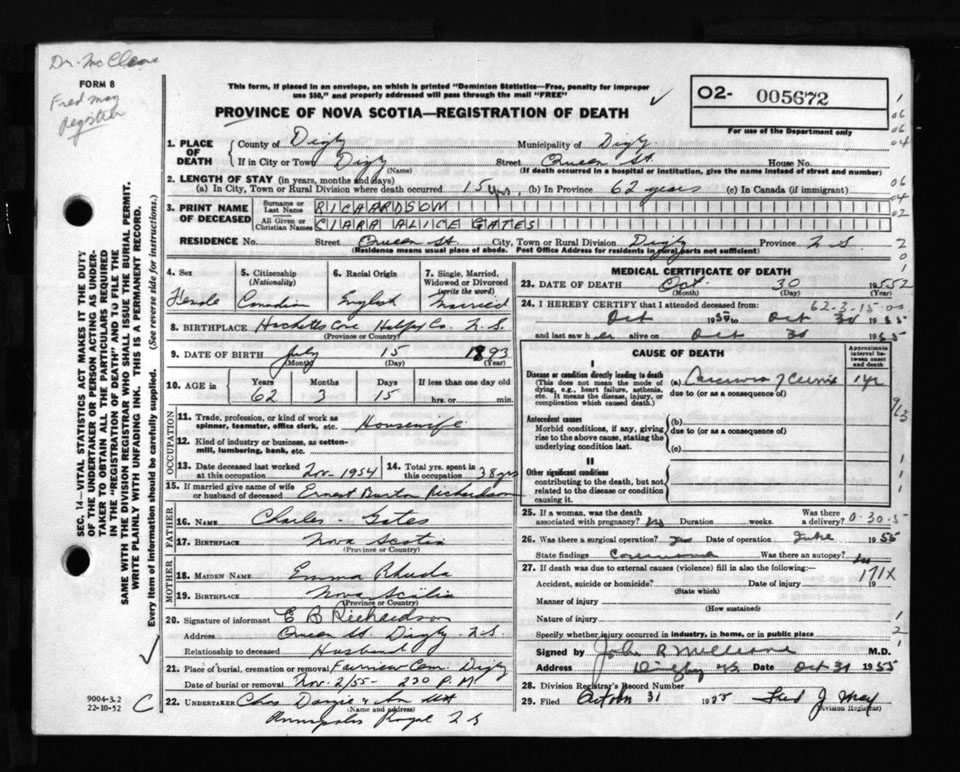 Dr. McCleave
FORM 8
Fred May
Registrar
This form, if placed in an envelope, on which is printed "Dominion Statistics—Free, penalty for improper
use $50," and properly addressed will pass through the mail "FREE"
PROVINCE OF NOVA SCOTIA—REGISTRATION OF DEATH
O2- 005672
For use of the Department only
1. PLACE OF DEATH
County of Digby Municipality of Digby
If in City or Town Digby (Name) Street Queen St. House No.
(If death occurred in a hospital or institution, give the name instead of street and number)
2. LENGTH OF STAY (in years, months and days)
(a) In City, Town or Rural Division where death occurred 15 yrs. (b) In Province 62 years (c) In Canada (if immigrant)
3. PRINT NAME OF DECEASED
Surname or Last Name RICHARDSON
All Given or Christian Names CLARA ALICE GATES
RESIDENCE No. Street Queen St City, Town or Rural Division Digby Province N.S.
(Residence means usual place of abode. Post Office Address for residents in rural parts not sufficient)
4. Sex
Female
5. Citizenship (Nationality)
Canadian
6. Racial Origin
English
7. Single, Married, Widowed or Divorced (write the word)
Married
8. BIRTHPLACE Hacketts Cove Halifax Co. N.S.
(Province or Country)
9. DATE OF BIRTH July 15 1893
(Month) (Day) (Year)
10. AGE in Years 62 Months 3 Days 15 If less than one day old
hrs. or min.
OCCUPATION
11. Trade, profession, or kind of work as
spinner, teamster, office clerk, etc. Housewife
12. Kind of industry or business, as cotton-
mill, lumbering, bank, etc.
13. Date deceased last worked
at this occupation Nov. 1954
14. Total yrs. spent in
this occupation 38 yrs
15. If married give name of wife
or husband of deceased Ernest Burton Richardson
FATHER
16. NAME Charles - Gates
17. BIRTHPLACE Nova Scotia
(Province or Country)
MOTHER
18. MAIDEN NAME Emma Rhuda
19. BIRTHPLACE Nova Scotia
(Province or Country)
20. Signature of informant E B Richardson
Address Queen St. Digby N.S.
Relationship to deceased Husband
21. Place of burial, cremation or removal Fairview Cem. Digby
Date of burial or removal Nov. 2/55 - 230 P.M.
22. UNDERTAKER
(Name and address)
Annapolis Royal N S
MEDICAL CERTIFICATE OF DEATH
23. DATE OF DEATH Oct. 30 1955
(Month) (Day) (Year)
62-3-15-00
24. I HEREBY CERTIFY that I attended deceased from
Oct 1955 to Oct 30 1955
and last saw her alive on Oct 30 1955
CAUSE OF DEATH
Approximate interval between onset and death
I
Disease or condition directly leading to death
(This does not mean the mode of
dying, e.g., heart failure, asthenia,
etc. It means the disease, injury, or
complication which caused death.)
(a) Carcinoma of Cervix 1 yr
due to (or as a consequence of)
Antecedent causes
Morbid conditions, if any, giving
rise to the above cause, stating the
underlying condition last.
(b)
due to (or as a consequence of)
(c)
II
Other significant conditions
contributing to the death, but not
related to the disease or condition
causing it.
25. If a woman, was the death
associated with pregnancy? No Duration weeks. Was there a delivery?
0-30-5
26. Was there a surgical operation? yes Date of operation June 1955
State findings Carcinoma Was there an autopsy? no
27. If death was due to external causes (violence) fill in also the following:—
171X
Accident, suicide or homicide? Date of injury 19
(State which)
Manner of injury
(How sustained)
Nature of injury
Specify whether injury occurred in industry, in home, or in public place
Signed by John R McCleave M.D.
Address Digby N.S. Date Oct 31 1955
28. Division Registrar's Record Number
29. Filed October 31 1955 Fred J. May
(Division Registrar)
SEC. 14—VITAL STATISTICS ACT MAKES IT THE DUTY
OF THE UNDERTAKER OR PERSON ACTING AS UNDER-
TAKER TO OBTAIN ALL THE PARTICULARS REQUIRED
IN THE "REGISTRATION OF DEATH" AND TO FILE THE
SAME WITH THE DIVISION REGISTRAR WHO SHALL ISSUE THE BURIAL PERMIT.
WRITE PLAINLY WITH UNFADING INK. THIS IS A PERMANENT RECORD.
Every item of information should be carefully supplied. (See reverse side for instructions.)
9004-3.2
22-10-52
C